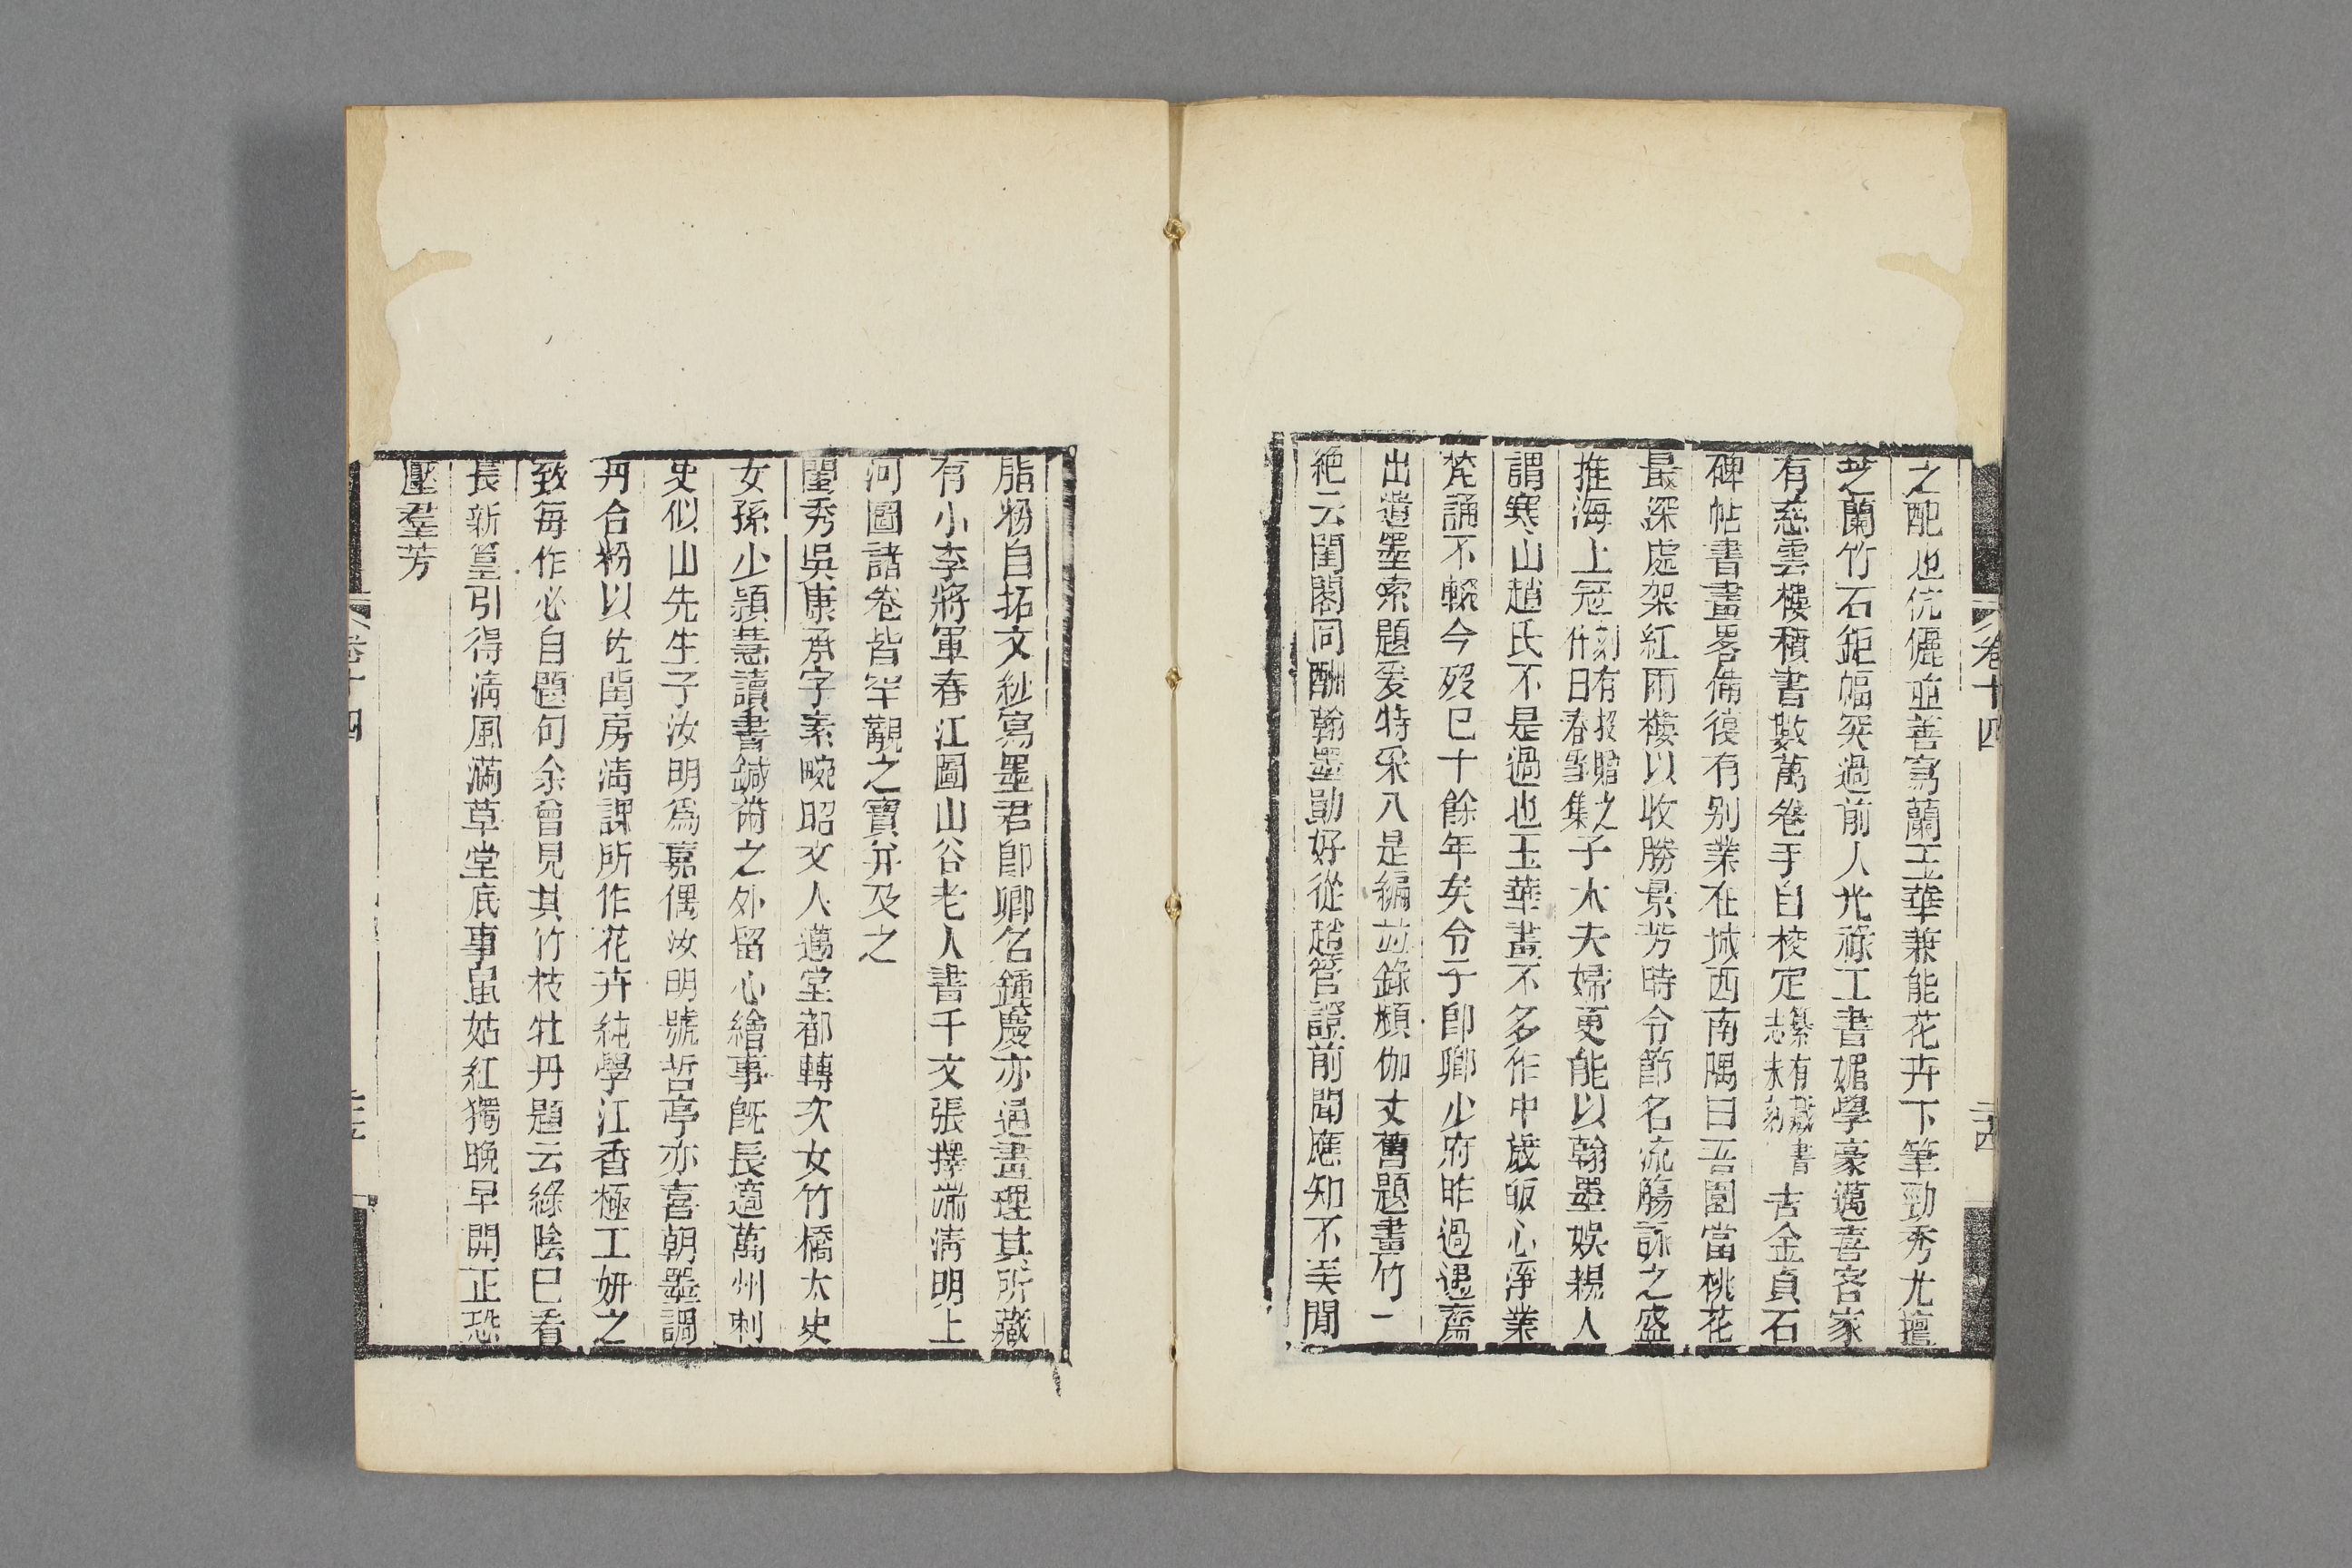 卷十四
之配也伉儷並善寫蘭玉華兼能花卉下筆勁秀尤擅
芝蘭竹石鉅幅突過前人光祿工書媚學豪邁喜客家
有慈雲樓積書數萬卷手自校定纂有藏書志未刻古金貞石
碑帖書畫畧備復有别業在城西南隅曰吾園當桃花
最深處架紅雨樓以收勝景芳時令節名流觴詠之盛
推海上冠刻有投贈之什曰春雪集子大夫婦更能以翰墨娛親人
謂寒山趙氏不是過也玉華畫不多作中歲皈心淨業
梵誦不輟今歿已十餘年矣令子卽卿少府昨過遇齋
出遺墨索題爰特采入是編並錄頻伽丈舊題畫竹一
絶云閨閣同酬翰墨勛好從趙管證前聞應知不羨閒
脂粉自拓文紗寫墨君卽卿名鍾慶亦通畫理其所藏
有小李將軍春江圖山谷老人書千文張擇端淸明上
河圖諸卷皆罕覯之寶并及之
閨秀吳康承字素畹昭文人邁堂都轉次女竹橋太史
女孫少穎慧讀書鍼黹之外留心繪事旣長適萬州刺
史似山先生子汝明爲嘉偶汝明號哲亭亦喜朝墨調
丹合粉以佐蘭房淸課所作花卉純學江香極工妍之
致每作必自題句余曾見其竹枝牡丹題云綠陰已看
長新篁引得淸風滿草堂底事鼠姑紅獨晚早開正恐
壓羣芳
卷十四